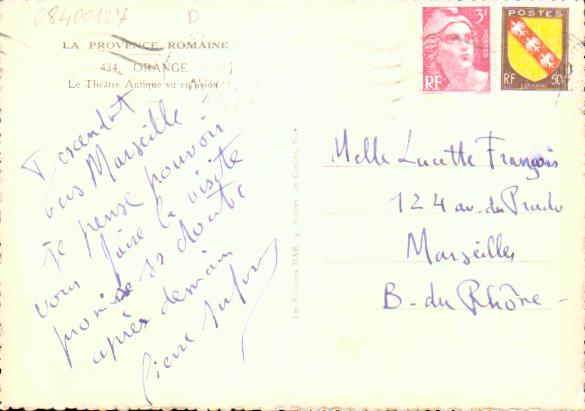 08400127 D
LA PROVENCE ROMAINE
434. ORANGE
Le Théâtre Antique vu en avion
vers Marseille
Je pense pouvoir
vous faire la visite
promise ss doute
après demain
Pierre
Melle Lucette François
124 av. du Prado
Marseille
B. du Rhône
3F
POSTES
RF
POSTES
RF 50c
LORRAINE